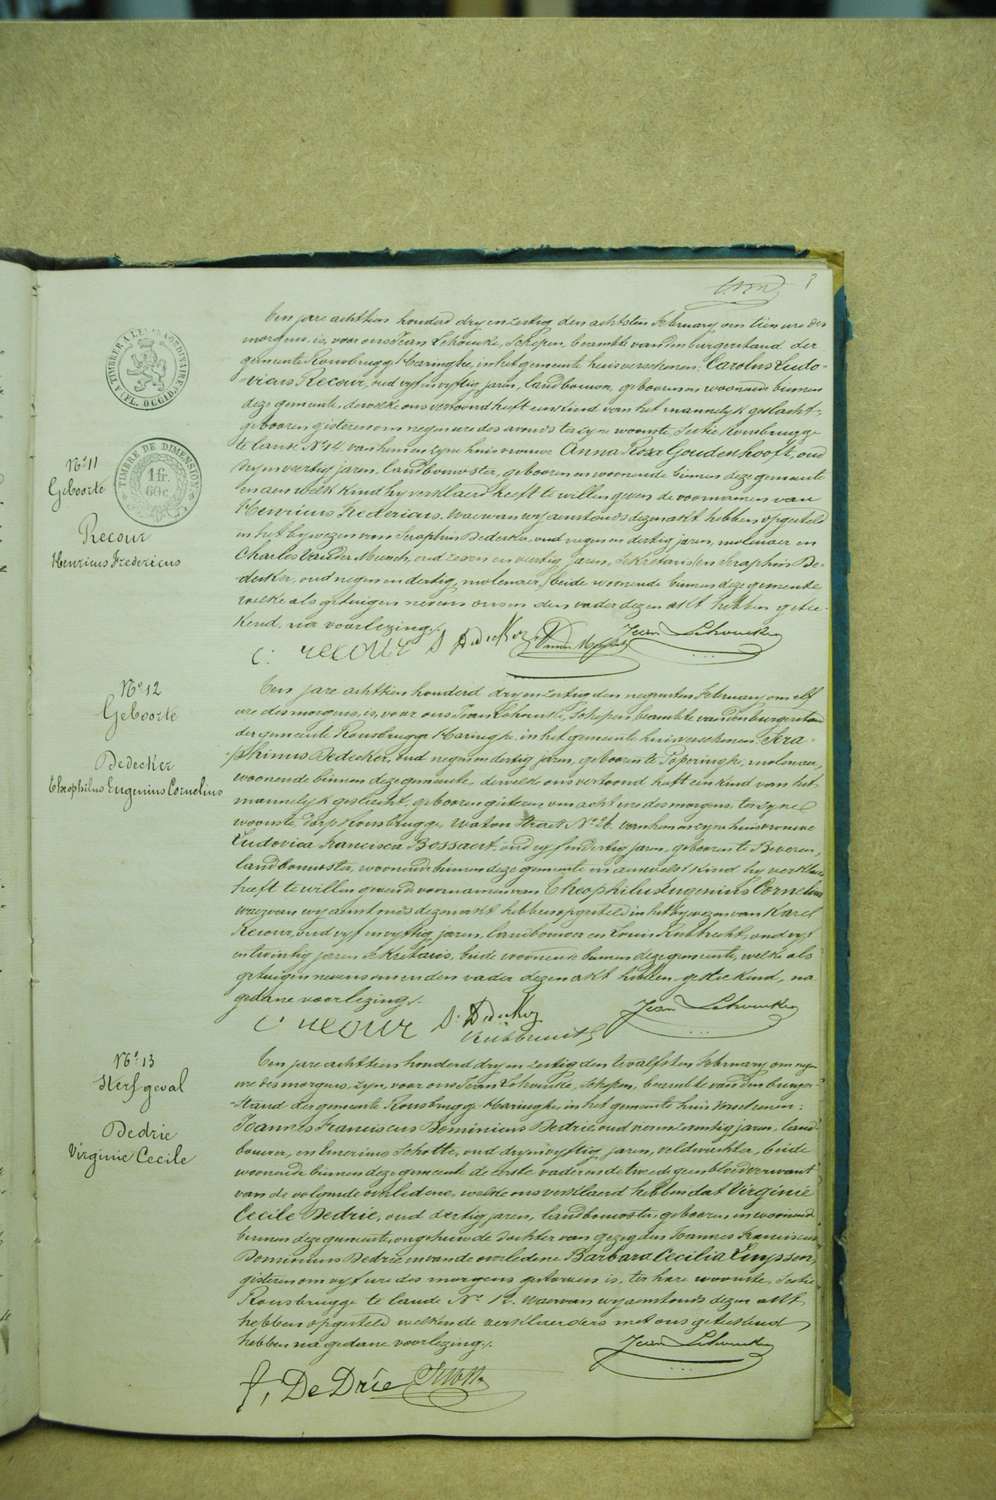 TIMBRE A L'EXTRAORDINAIRE
(FL. OCCID.)
TIMBRE DE DIMENSION
1 fr.
60 c.
No 11
Geboorte
Recour
Henricus Fredericus
Een jare achttien honderd dry en zestig, den achtsten February om tien ure des
morgens, is, voor ons Jean Schoucke, Schepen, beambte van den burgerstand der
gemeente Rousbrugge Haringhe, in het gemeente huis verschenen: Carolus Ludo-
vicus Recour, oud vyf en vyftig jaren, landbouwer, geboren en woonende binnen
deze gemeente, dewelke ons vertoond heeft een kind van het mannelyk geslacht,
geboren gisteren om negen ure des avonds ter zyne woonste, Sectie Rousbrugge
te lande No 14 van hem en zyne huisvrouwe Anna Rosa Goudenhooft, oud
en veertig jaren, landbouwster, geboren en woonende binnen deze gemeente
en aen welk kind hy verklaerd heeft te willen geven de voornamen van
Henricus Fredericus. Waervan wy aenstonds dezen akt hebben opgesteld
in het bywezen van Seraphin Dedecker, oud negen en dertig jaren, molenaer en
Charles Vander Meersch, oud zeven en veertig jaren, Sekretaris en Seraphin De-
decker, oud negen en dertig, molenaer, beide woonende binnen deze gemeente
welke als getuigen nevens ons en den vader dezen akt hebben getee-
kend, na voorlezing.
C: recour S Dedecker Jean Schoucke
No 12
Geboorte
Dedecker
Theophilus Eugenius Cornelius
Een jare achttien honderd dry en zestig den negensten February, om elf
ure des morgens, is, voor ons Jean Schoucke, Schepen, beambte van den burgerstand
der gemeente Rousbrugge Haringhe, in het gemeente huis verschenen: Sera-
phinus Dedecker, oud negen en dertig jaren, geboren te Poperinghe, molenaer,
woonende binnen deze gemeente, dewelke ons vertoond heeft een kind van het
mannelyk geslacht, geboren gisteren om acht ure des morgens, ter zyne
woonste, dorp Rousbrugge, Waton straet No 26. van hem en zyne huisvrouwe
Ludovica Francisca Bossaert, oud vyf en dertig jaren, geboren te Beveren,
landbouwster, woonende binnen deze gemeente en aen welk kind hy verklaerd
heeft te willen geven de voornamen van Theophilus Eugenius Cornelius
waervan wy aenstonds dezen akt hebben opgesteld in het bywezen van Karel
Recour, oud vyf en vyftig jaren, landbouwer en Louis Rubbrecht, oud vyf
en twintig jaren sekretaris, beide woonende binnen deze gemeente, welke als
getuigen nevens ons en den vader dezen akt hebben geteekend, na
gedane voorlezing.
C: recour S. Dedecker Jean Schoucke
Rubbrecht
No 13
Sterfgeval
Dedrie
Virginie Cecile
Een jare achttien honderd dry en zestig den twalfsten February om negen
ure des morgens, zyn, voor ons Jean Schoucke, Schepen, beambte van den burger-
stand der gemeente Rousbrugge Haringhe in het gemeente huis verschenen:
Joannes Franciscus Dominicus Dedrie oud zestig jaren, land-
bouwer, en Schotte, oud dry en vyftig jaren, veldwachter, beide
woonende binnen deze gemeente de eerste vader en de tweede gen bloedverwant
van de volgende overledene, welke ons verklaerd hebben dat Virginie
Cecile Dedrie, oud dertig jaren, landbouwster, geboren en woonende
binnen deze gemeente, ongehuwde dochter van gezegden Joannes Franciscus
Dominicus Dedrie en van de overledene Barbara Cecilia
gisteren om vyf ure des morgens gestorven is, ter hare woonste, Sectie
Rousbrugge te lande No 12. waervan wy aenstonds dezen akt
hebben opgesteld welken de verklaerders met ons geteekend
hebben na gedane voorlezing.
Jean Schoucke
f, De Drie Schotte